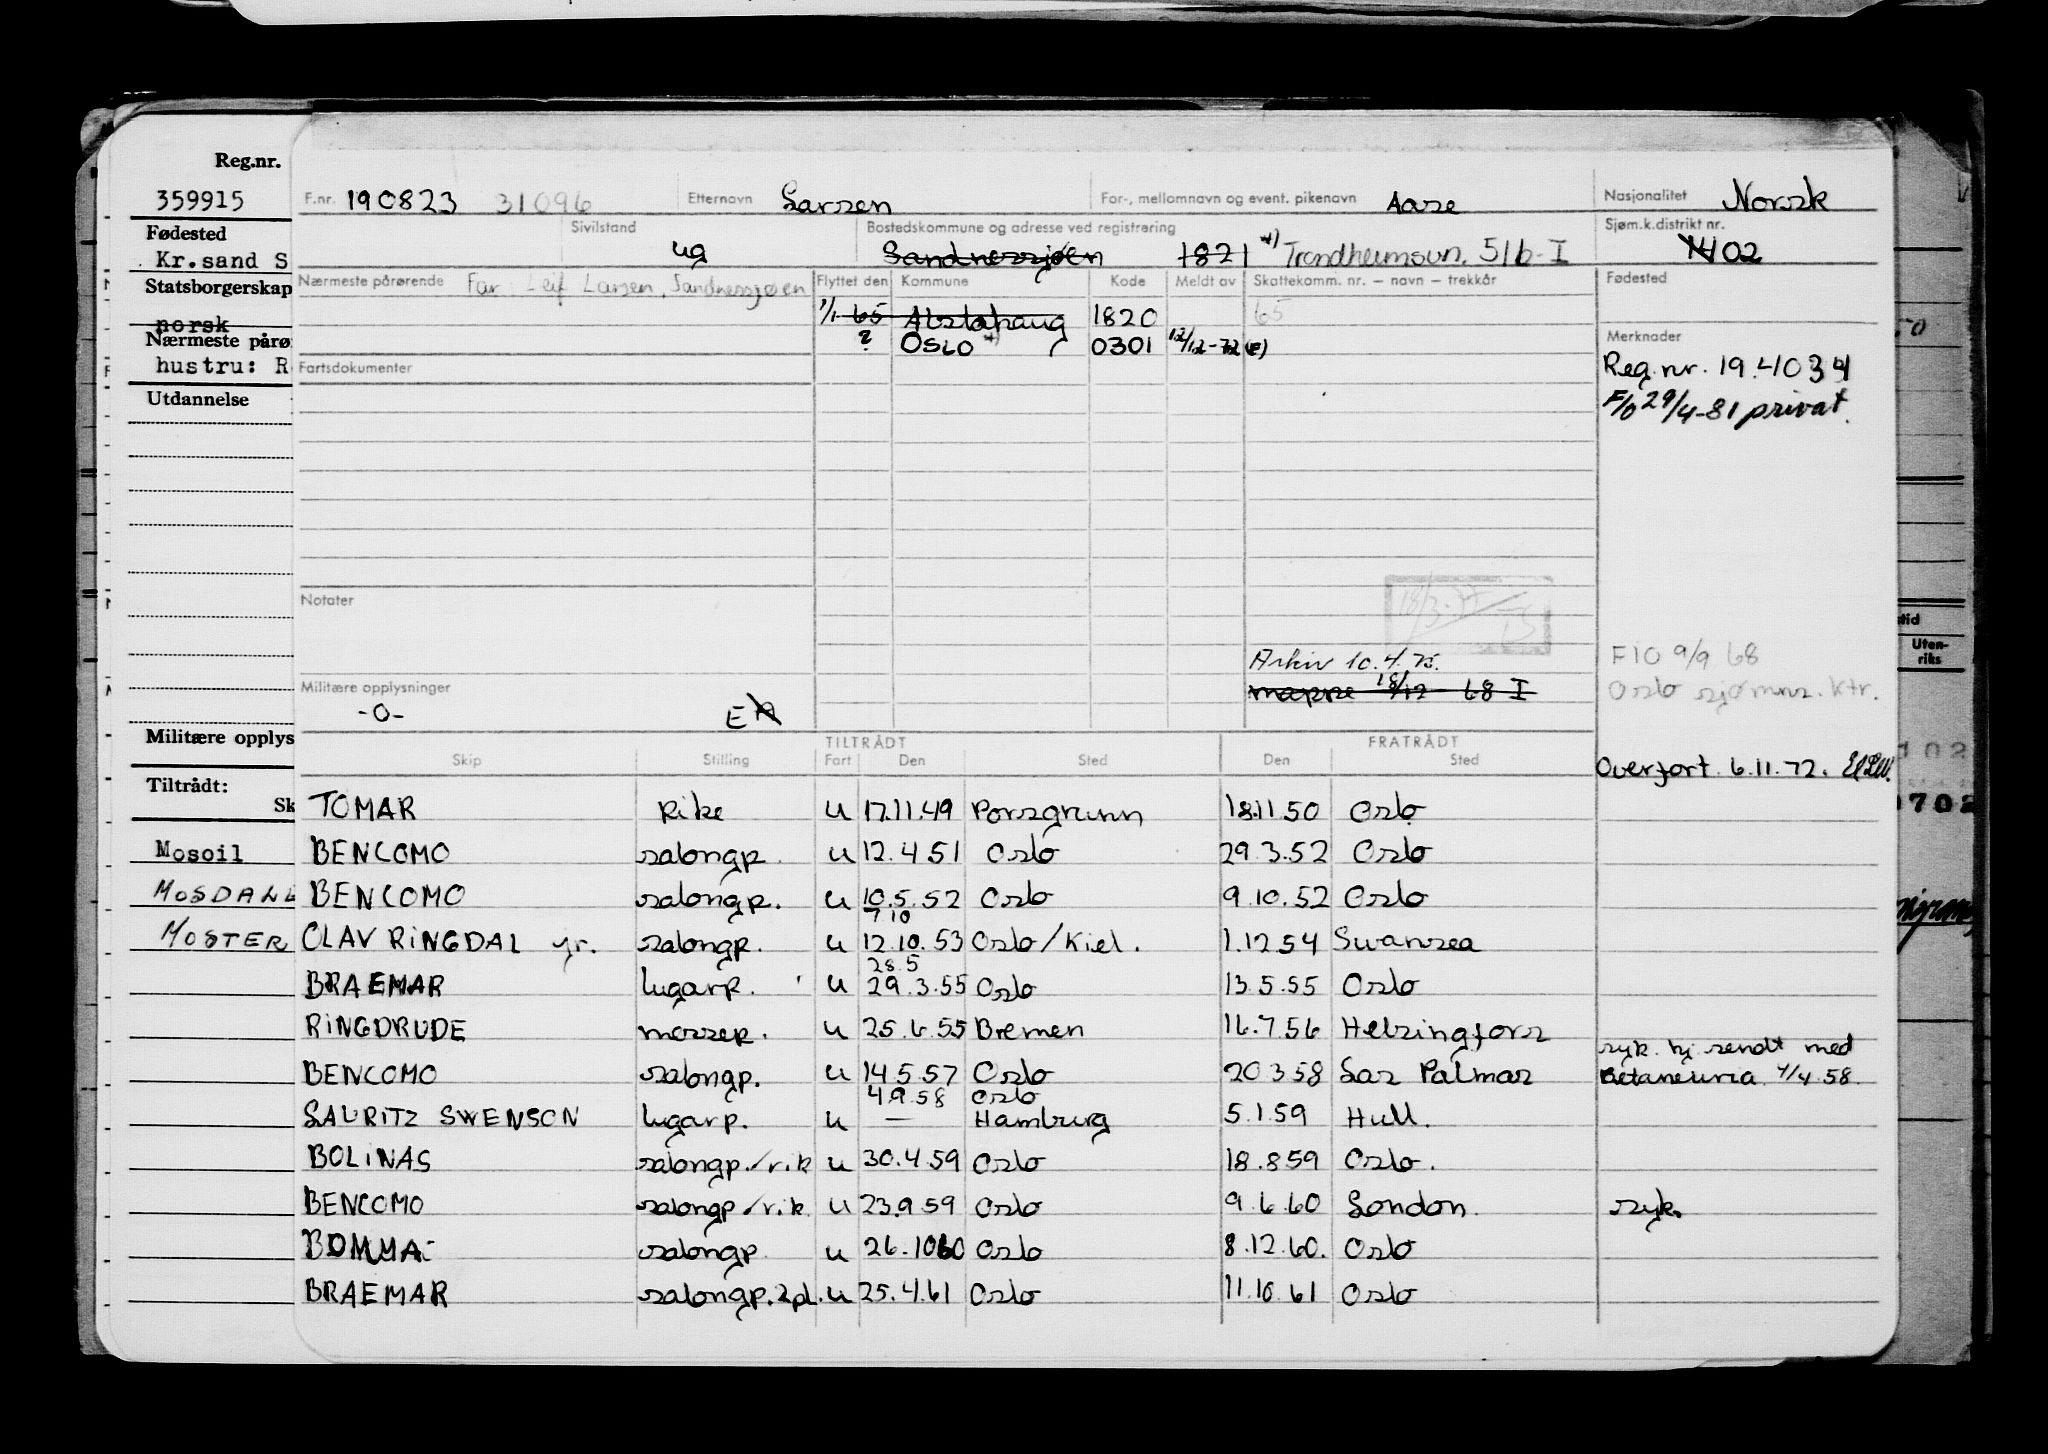 Reg.nr.
359915
Fødested
Kr.sand S
Statsborgerskap
norsk
Nærmeste påro
hustru: R
Utdannelse
Militære opplys
Tiltrådt:
Sk
Mosoil
MOSDALL
MOSTER
F.nr. 190823 31096 Etternavn Larsen For-, mellomnavn og event. pikenavn Aase Nasjonalitet Norsk
Sivilstand ug Bostedskommune og adresse ved registrering Sandnessjøen 1821 *) Trondheimsvn. 51b-I Sjøm.k.distrikt nr. 02
Nærmeste pårørende Far: Leif Larsen, Sandnessjøen Flyttet den Kommune Kode Meldt av Skattekomm. nr. – navn – trekkår Fødested
1/1 65 Alstahaug 1820 65
? OSLO *) 0301 12/12-72 (e) Merknader
Fartsdokumenter
Reg. nr. 19.4034
F/O 29/4-81 privat.
Notater
18/3.
Arkiv 10.4.75.
mappe 18/12 68 I
F10 9/9 68
Oslo sjømns. ktr.
Militære opplysninger
-0- E
Overført 6.11.72.
TILTRÅDT FRATRÅDT
Skip Stilling Fart Den Sted Den Sted
TOMAR Pike u 17.11.49 Porsgrunn 18.11.50 Oslo
BENCOMO salongp. u 12.4 51 Oslo 29.3.52 Oslo
BENCOMO salongp. u 10.5.52 Oslo 9.10.52 Oslo
7 10
OLAV RINGDAL jr. salongp. u 12.10.53 Oslo/Kiel. 1.12 54 Swansea
28.5
BRAEMAR lugarp. u 29.3.55 Oslo 13.5.55 Oslo
RINGDRUDE messep. u 25.6.55 Bremen 16.7.56 Helsingfors
BENCOMO salongp. u 14 5.57 Oslo 20 3 58 Las Palmas syk. hj. sendt med Betancuria 4/4.58.
4.9.58 Oslo
LAURITZ SWENSON lugarp. u — Hamburg 5.1.59 Hull.
BOLINAS salongp./rik u 30.4.59 Oslo 18.8 59 Oslo.
BENCOMO salongp/rik u 23.9.59 Oslo 9.6.60 London. syk.
BOMMA salongp. u 26.10 60 Oslo 8.12.60. Oslo
BRAEMAR salongp.2pl. u 25.4.61 Oslo 11.10.61 Oslo
tid
Uten-
riks
102
702